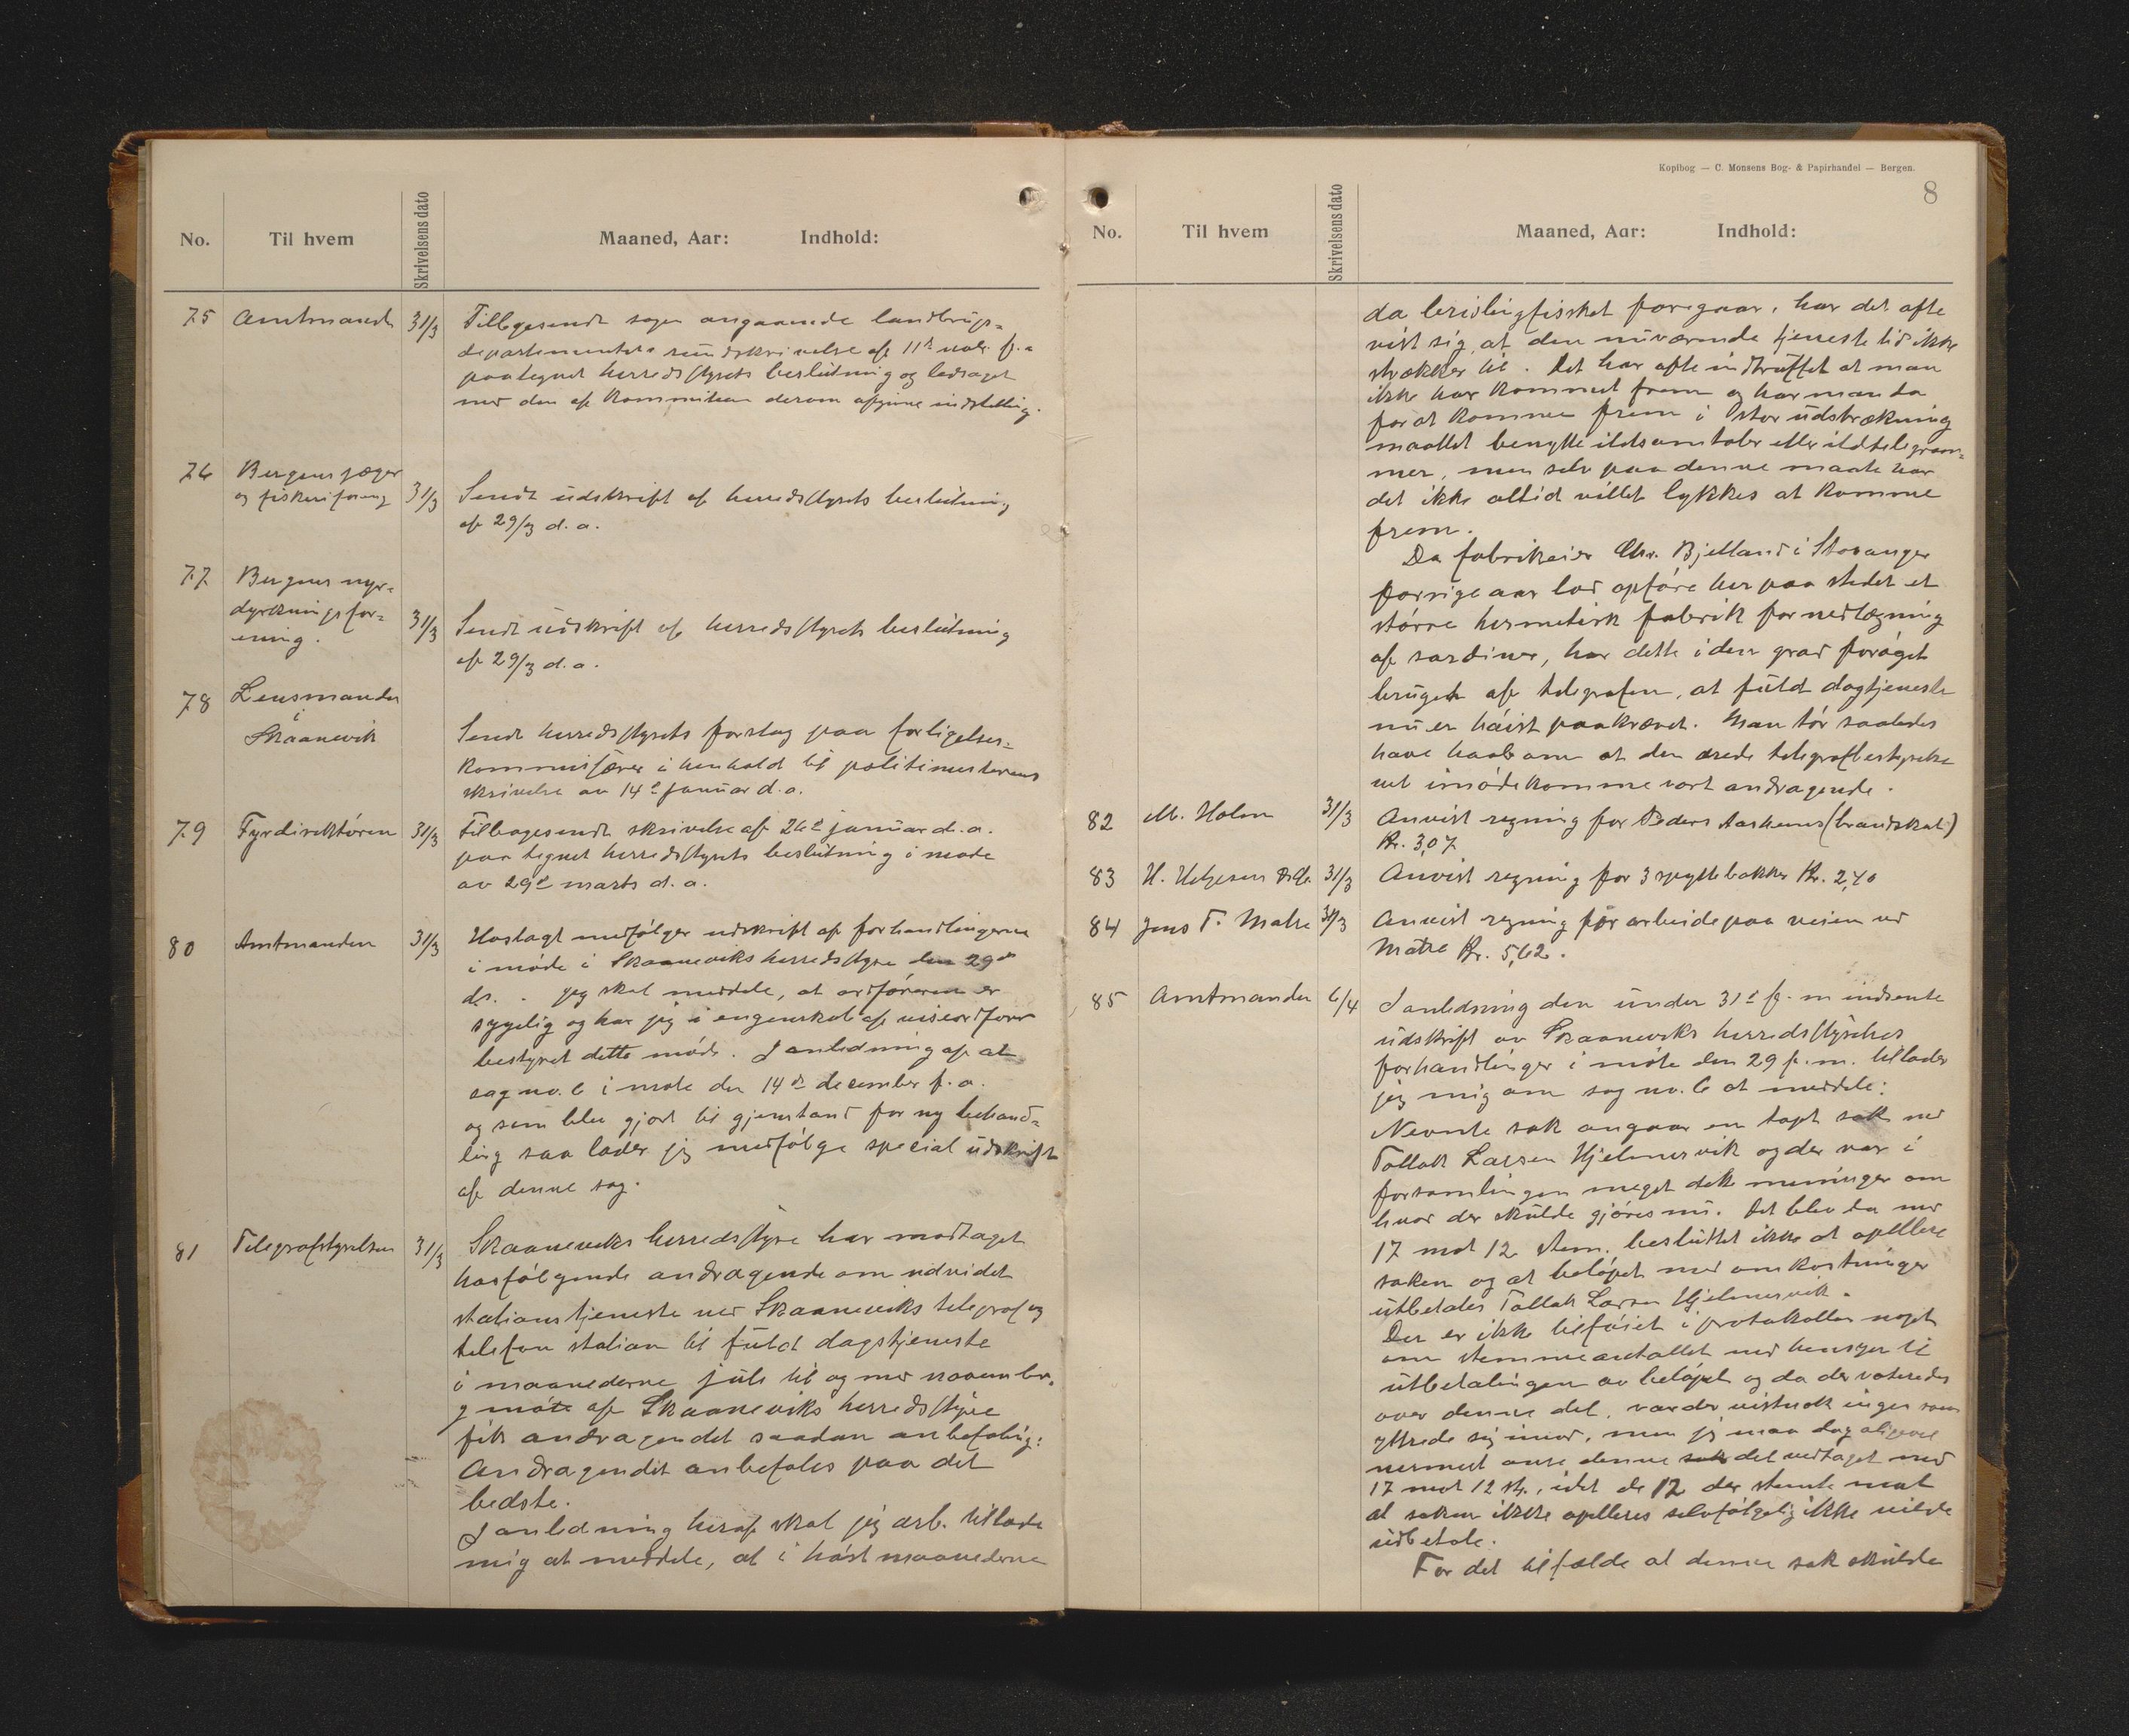 No. Til hvem Skrivelsens dato Maaned, Aar: Indhold:
75 Amtmand 31/3 Tilbagesendt sagen angaaende landbrugs=
departementets rundskrivelse af 11te f. a
paategnet herredsstyrets beslutning og ledsaget
med den af kommiteen derom afgivne indstilling.
76 Bergens jæger
og fiskeriforening 31/3 Sendt udskrift af herredsstyrets beslutning
af 29/3 d. a.
77 Bergens myr=
dyrkningsfor=
ening. 31/3 Sendt udskrift af herredsstyrets beslutning
af 29/3 d. a.
78 Lensmanden
i
Skaanevik
Sendt herredsstyrets forslag paa forligelses=
kommissærer i henhold til politimesterens
skrivelse av 14de januar d. a.
79 Fyrdirektøren 31/3 Tilbagesendt skrivelse af 26de januar d. a.
paategnet herredsstyrets beslutning i møde
av 29de marts d. a.
80 Amtmanden 31/3 Hoslagt medfølger udskrift af forhandlingerne
i møde i Skaaneviks herredsstyre den 29de
ds. . Jeg skal meddele, at ordføreren er
sygelig og har jeg i engenskab af viseordfører
bestyret dette møde. I anledning af at
sag no. 6 i møte den 14de december f. a.
og som blev gjort til gjenstand for ny behand=
ling saa lader jeg medfølge special udskrift
af denne sag.
81 Telegrafstyrelsen 31/3 Skaaneviks herredsstyre har modtaget
hosfølgende andragende om udvidet
stationstjeneste ved Skaaneviks telegraf og
telefon station til fuld dagstjeneste
i maanederne juli til og med november.
I møte af Skaaneviks herredsstyre
fik andragendet saadan anbefaling:
Andragendet anbefales paa det
bedste.
I anledning heraf skal jeg ærb. tillade
mig at meddele, at i høstmaanederne
Kopibog — C. Monsens Bog- & Papirhandel — Bergen.
8
No. Til hvem Skrivelsens dato Maaned, Aar: Indhold:
da brislingfisket foregaar, har det ofte
vist sig, at den nuværende tjenestetid ikke
strækker til. Det har ofte indtruffet at man
ikke har kommet frem og har man da
for at komme frem i stor udstrækning
maattet benytte ilsamtaler eller iltelegram=
mer, men selv paa denne maate har
det ikke altid villet lykkes at komme
frem.
Da fabrikeier Chr. Bjelland i Stavanger
forrige aar lod opføre her paa stedet et
større hermetisk fabrik for nedlægning
af sardiner, har dette i den grad forøget
brugen af telegrafen, at fuld dagtjeneste
nu er høist paakrævet. Man tør saaledes
have haab om at den ærede telegrafbestyrelse
vil imødekomme vort andragende.
82 M. Holm 31/3 Anvist regning for Peders Aarhems (brandskat)
Kr. 3,07
83 H. Helgesen 31/3 Anvist regning for 3 spyttebakker Kr. 2,40
84 Jens T. Matre 31/3 Anvist regning for arbeide paa veien ved
Matre Kr. 5,62.
85 Amtmanden 6/4 I anledning den under 31te f. m indsente
udskrift av Skaaneviks herredsstyrelses
forhandlinger i møte den 29 f. m. tillader
jeg mig om sag no. 6 at meddele:
Nevnte sak angaar en tapt sak med
Tollak Larsen Hjelmervik og der var i
forsamlingen meget delte meninger om
hvad der skulde gjøres nu. Det blev da med
17 mot 12 stem. besluttet ikke at apellere
saken og at beløpet med omkostninger
utbetales Tollak Larsen Hjelmervik.
Der er ikke tilføiet i protokollen noget
om stemmeantallet med hensyn til
utbetalingen av beløpet og da der voteredes
over denne del, var der vistnok ingen som
yttrede sig imod, men jeg maa dog alligevel
nermest anse denne del vedtaget med
17 mot 12 st., idet de 12 der stemte mot
at saken ikke apelleres selvfølgelig ikke vilde
udbetale.
For det tilfælde at denne sak skulde